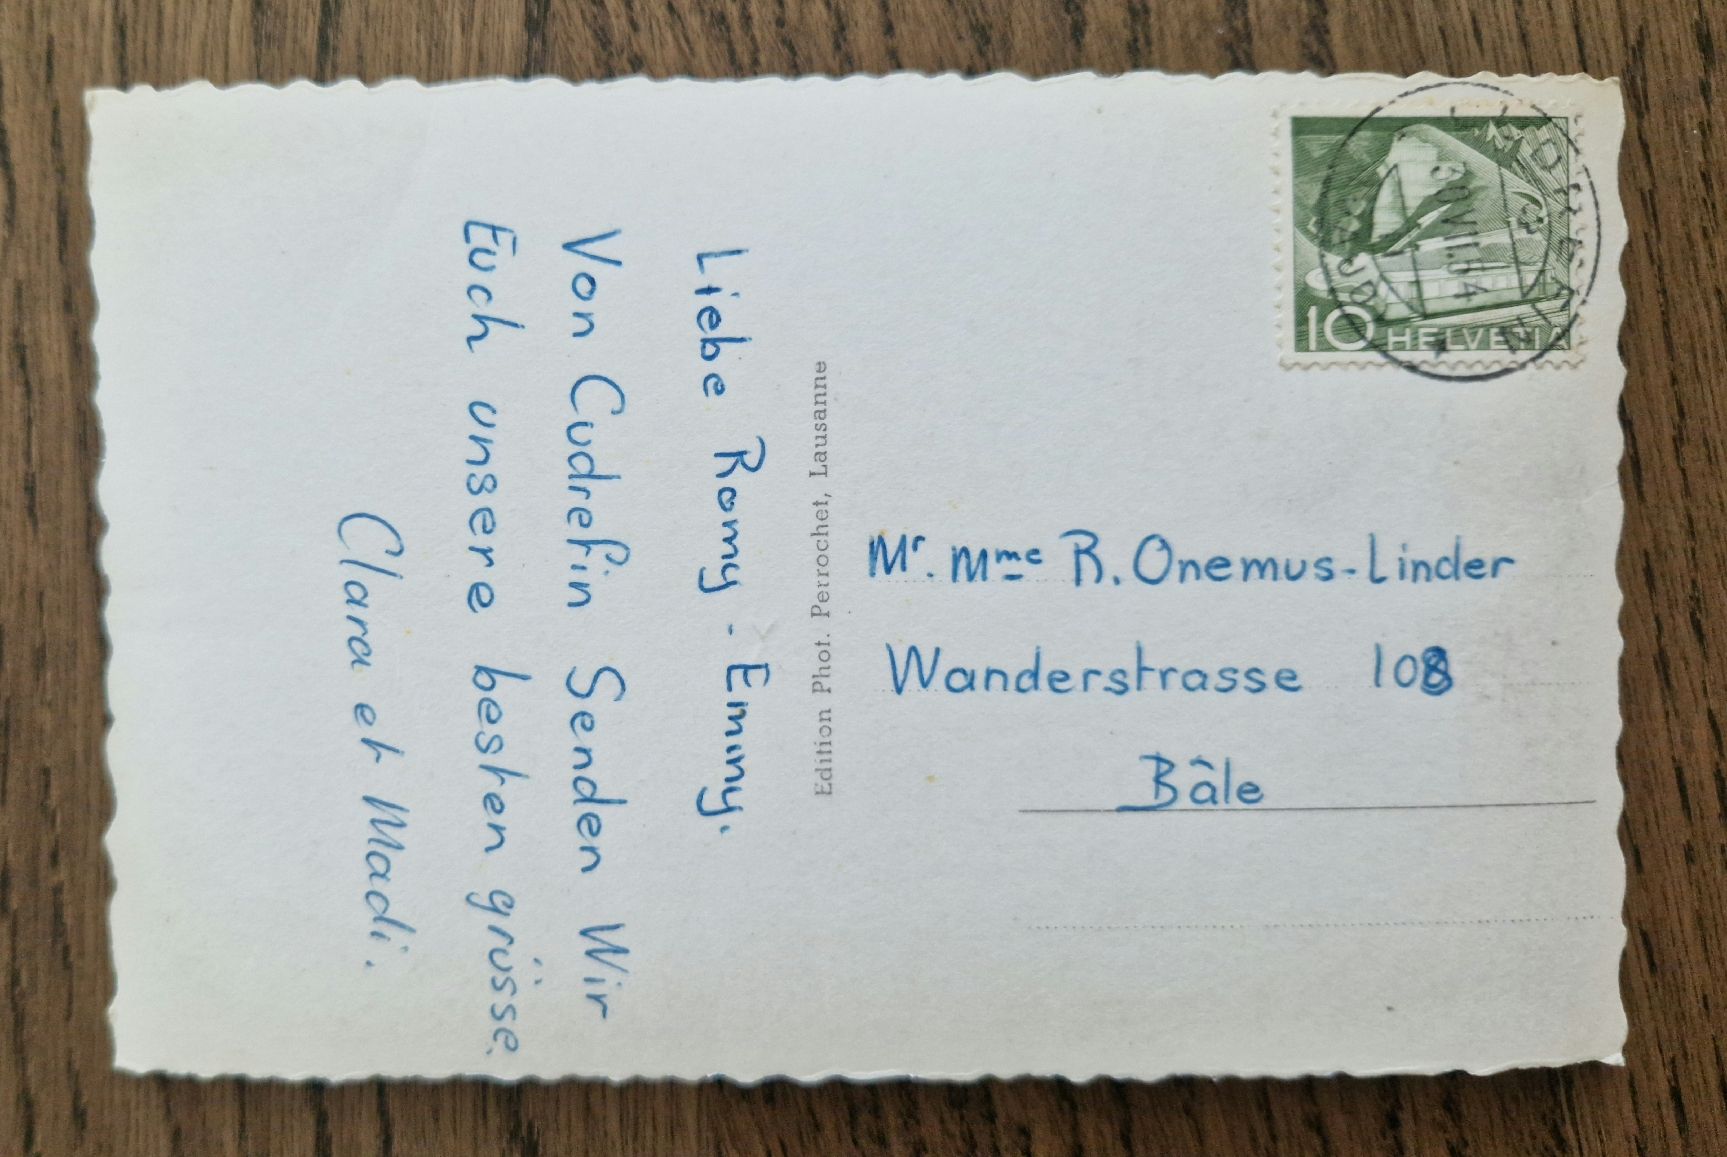 Liebe Romy - Emmy.
Von Cudrefin Senden Wir
Euch unsere besten grüsse.
Clara et Madi.
Edition Phot. Perrochet, Lausanne
10 HELVETIA
CUDREFIN
30.VII.54
Mr. Mme R. Onemus-Linder
Wanderstrasse 108
Bâle